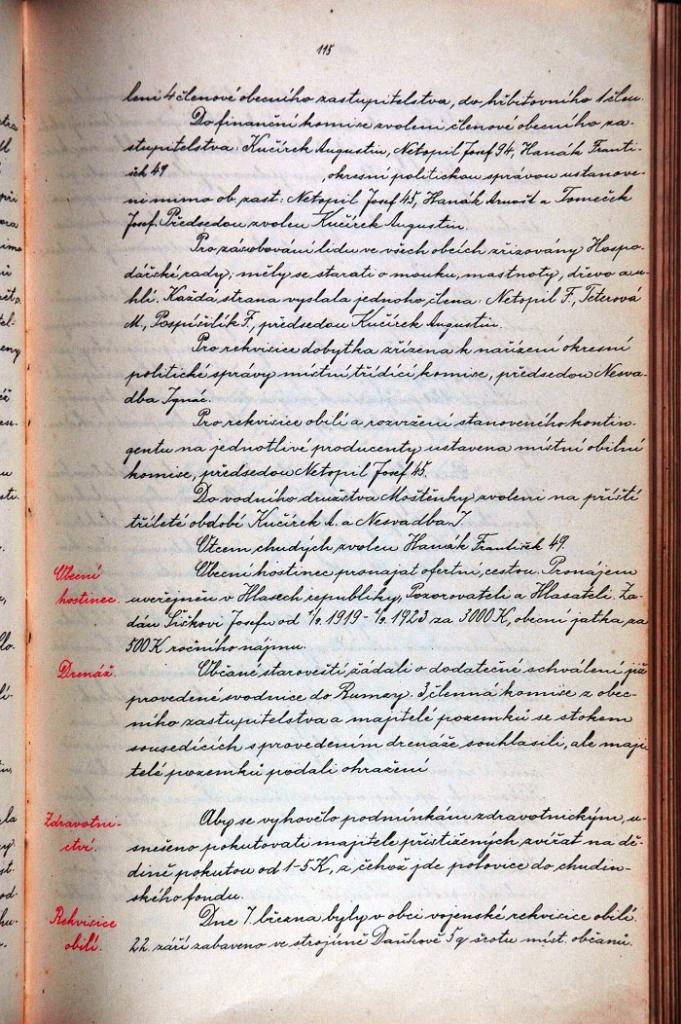 115
leni 4 členové obecního zastupitelstva, do hřbitovního 1 člen.
Do finanční komise zvoleni členové obecního za-
stupitelstva: Kučírek Augustin, Netopil Josef 94, Hanák Franti-
šek 49, okresní politickou správou ustanove-
ni mimo ob. zast.: Netopil Josef 45, Hanák Arnošt a Tomeček
Josef. Předsedou zvolen Kučírek Augustin.
Pro zásobování lidu ve všech obcích zřizovány Hospo-
dářské rady; měly se starati o mouku, mastnoty, dřevo a u-
hlí. Každá strana vyslala jednoho člena: Netopil F., Peterová
M., Pospíšilík F., předsedou Kučírek Augustin.
Pro rekvisice dobytka zřízena k nařízení okresní
politické správy místní třídící komise, předsedou Nesva-
dba Ignác.
Pro rekvisice obilí a rozvržení stanoveného kontin-
gentu na jednotlivé producenty ustavena místní obilní
komise, předsedou Netopil Josef 45.
Do vodního družstva Moštěnky zvoleni na příští
tříleté období Kučírek A. a Nesvadba I.
Otcem chudých zvolen Hanák František 49.
Obecní
hostinec.
Obecní hostinec pronajat ofertní cestou. Pronájem
uveřejněn v Hlasech republiky, Pozorovateli a Hlasateli. Za-
dán Šiškovi Josefu od 1/9. 1919 - 1/9. 1923 za 3000 K, obecní jatka za
500 K ročního nájmu.
Drenáž.
Občané starověští žádali o dodatečné schválení již
provedené svodnice do Rumzy. 3 členná komise z obec-
ního zastupitelstva a majitelé pozemků se stokem
sousedících s provedením drenáže souhlasili, ale maji-
telé pozemků podali ohražení
Zdravotni-
ctví.
Aby se vyhovělo podmínkám zdravotnickým, u-
snešeno pokutovati majitele přistižených zvířat na dě-
dině pokutou od 1-5 K, z čehož jde polovice do chudin-
ského fondu.
Rekvisice
obilí.
Dne 7. března byly v obci vojenské rekvisice obilí.
22. září zabaveno ve strojírně Daňkově 5 q šrotu míst. občanů.